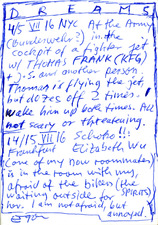 DREAMS
4/5 VII 16 NYC At the Army
(Bundeswehr?) in the
cockpit of a fighter jet
w/ THOMAS FRANK (KFG)
+ J.S. and another person.
Thomas is flying the jet,
but dozes off 2 times. I
wake him up both times. All
not scary or threatening.
14/15 VII 16 Scheto!!
Frankfurt Elizabeth Wu
(one of my now roommates)
is in the room with me,
afraid of the (waiting outside for SPIRITS)
her. I am not afraid, but
annoyed.